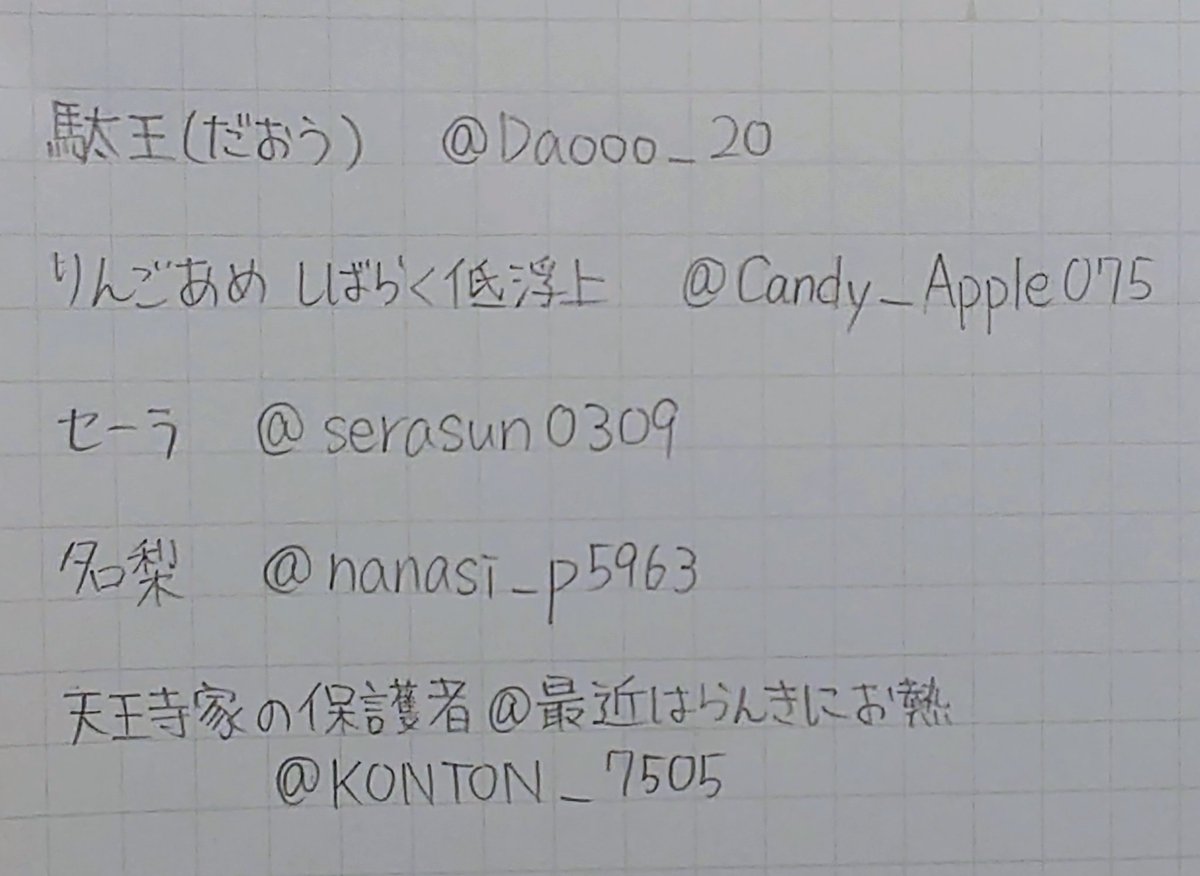 駄王(だおう) @Daooo_20
りんごあめ しばらく低浮上 @Candy_Apple075
セーラ @serasun0309
名梨 @nanasi_p5963
天王寺家の保護者@最近はらんきにお熱
@KONTON_7505